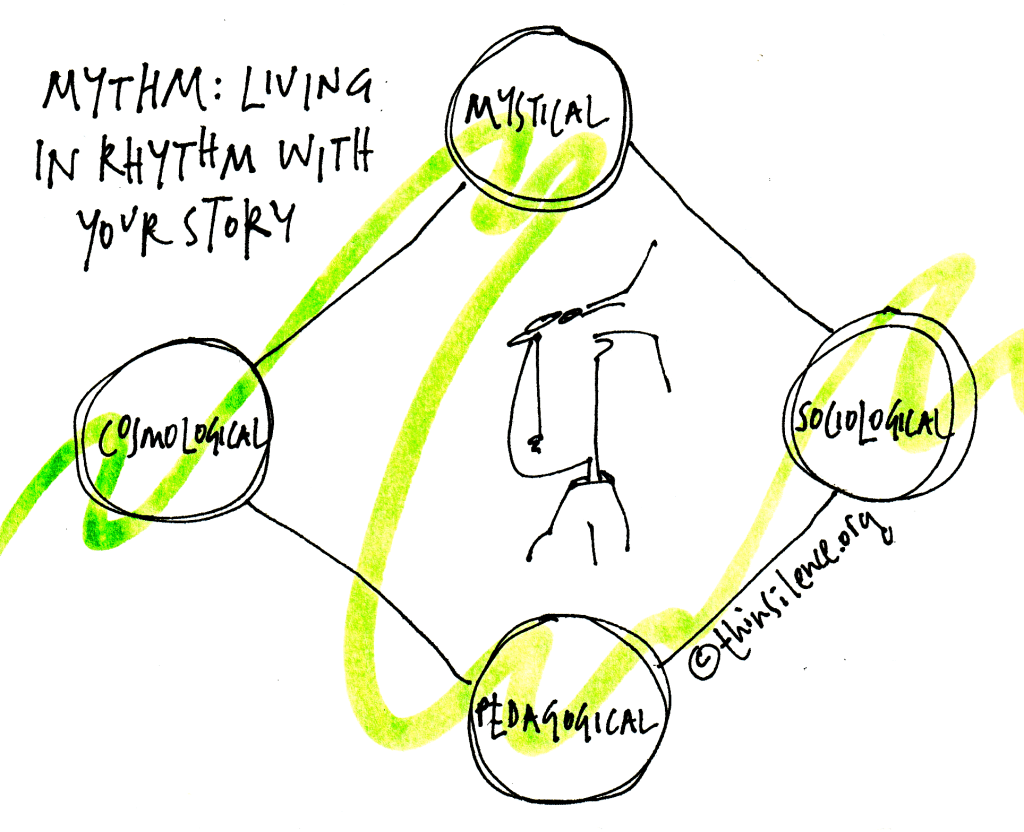 MYTHM: LIVING
IN RHYTHM WITH
YOUR STORY
MYSTICAL
COSMOLOGICAL
SOCIOLOGICAL
PEDAGOGICAL
©thinsilence.org